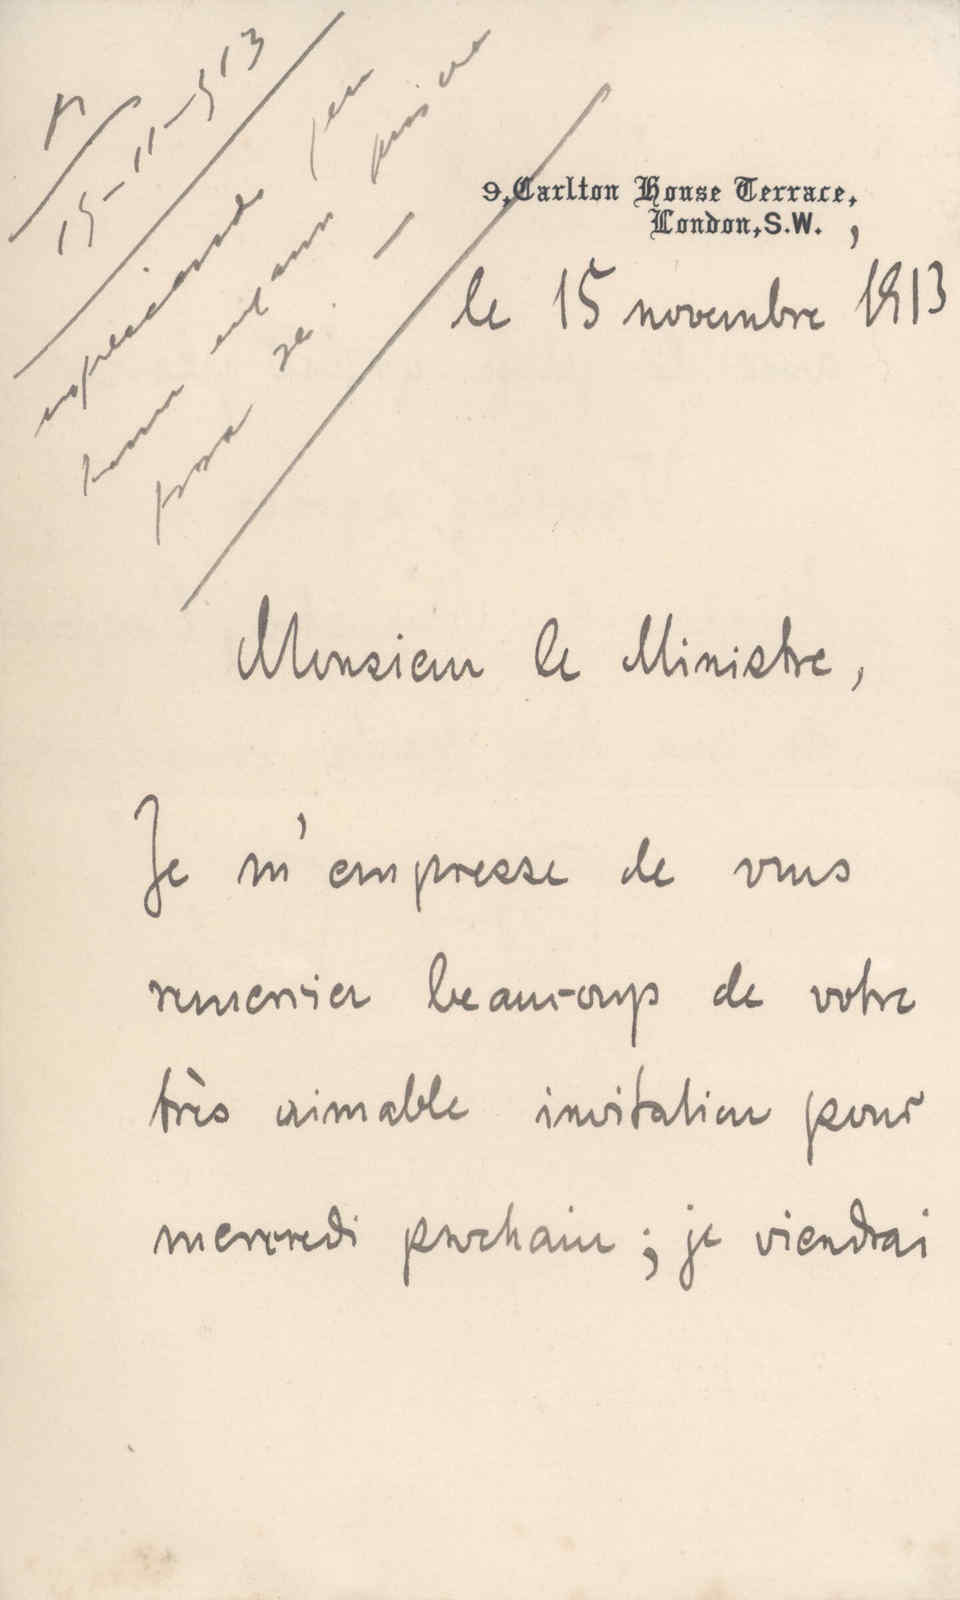 15-11-913
9, Carlton House Terrace,
London, S.W. ,
le 15 novembre 1913
Monsieur le Ministre,
Je m'empresse de vous
remercier beaucoup de votre
très aimable invitation pour
mercredi prochain ; je viendrai